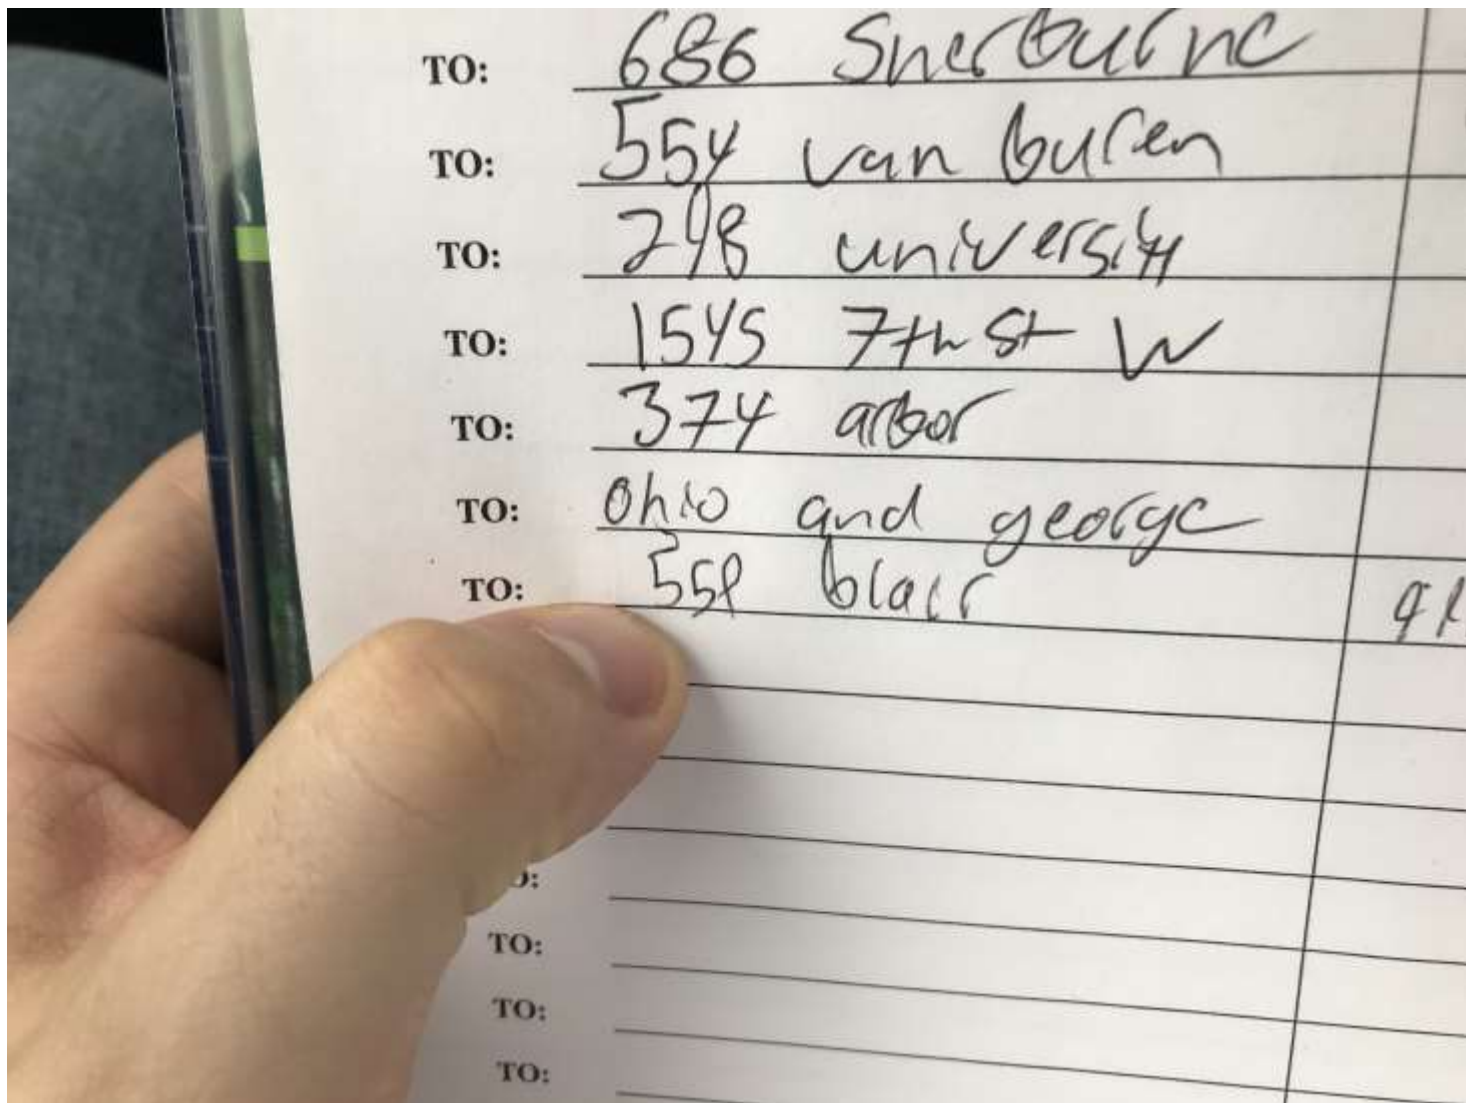 TO: 686 Sherburne
TO: 554 van buren
TO: 248 university
TO: 1545 7th St W
TO: 374 arbor
TO: Ohio and george
TO: blair
O:
TO:
TO:
TO: